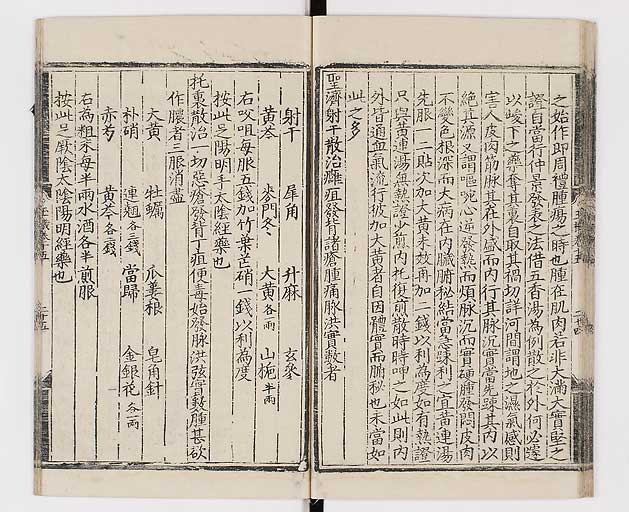 之始作即周禮腫瘍之時也腫在肌肉若非大滿大實堅之
證自當行仲景發表之法借五香湯為例散之於外何必遽
以峻下之藥奪其裏自取其禍切詳河間謂地之濕氣感則
害人皮肉筋脉其在外盛而內行其脉沉實當先疎其內以
絶其源又謂嘔哕心逆發熱而煩脉沉而實硬腫發悶皮肉
不變色根深而大病在內臟腑秘結當急疎利之宜黄連湯
先服一二貼次加大黄未效再加二錢以利為度如有熱證
只與黄連湯無熱證少煎內托復煎散時時呷之如此則內
外皆通血氣流行彼加大黄者自因體實而腑秘也未當如
此之多
聖濟射干散治癰疽發背諸瘡腫痛脉洪實數者
射干 犀角 升麻 玄參
黄芩 麥門冬 大黄各一兩 山梔半兩
右㕮咀每服五錢加竹葉芒硝一錢以利為度
按此足陽明手太陰經藥也
托裏散治一切惡瘡發背丁疽便毒始發脉洪弦實數腫甚欲
作膿者三服消盡
大黄 牡蠣 瓜蔞根 皂角針
朴硝 連翹各三錢 當歸 金銀花各一兩
赤芍 黄芩各二錢
右為粗末每半兩水酒各半煎服
按此足厥陰太陰陽明經藥也